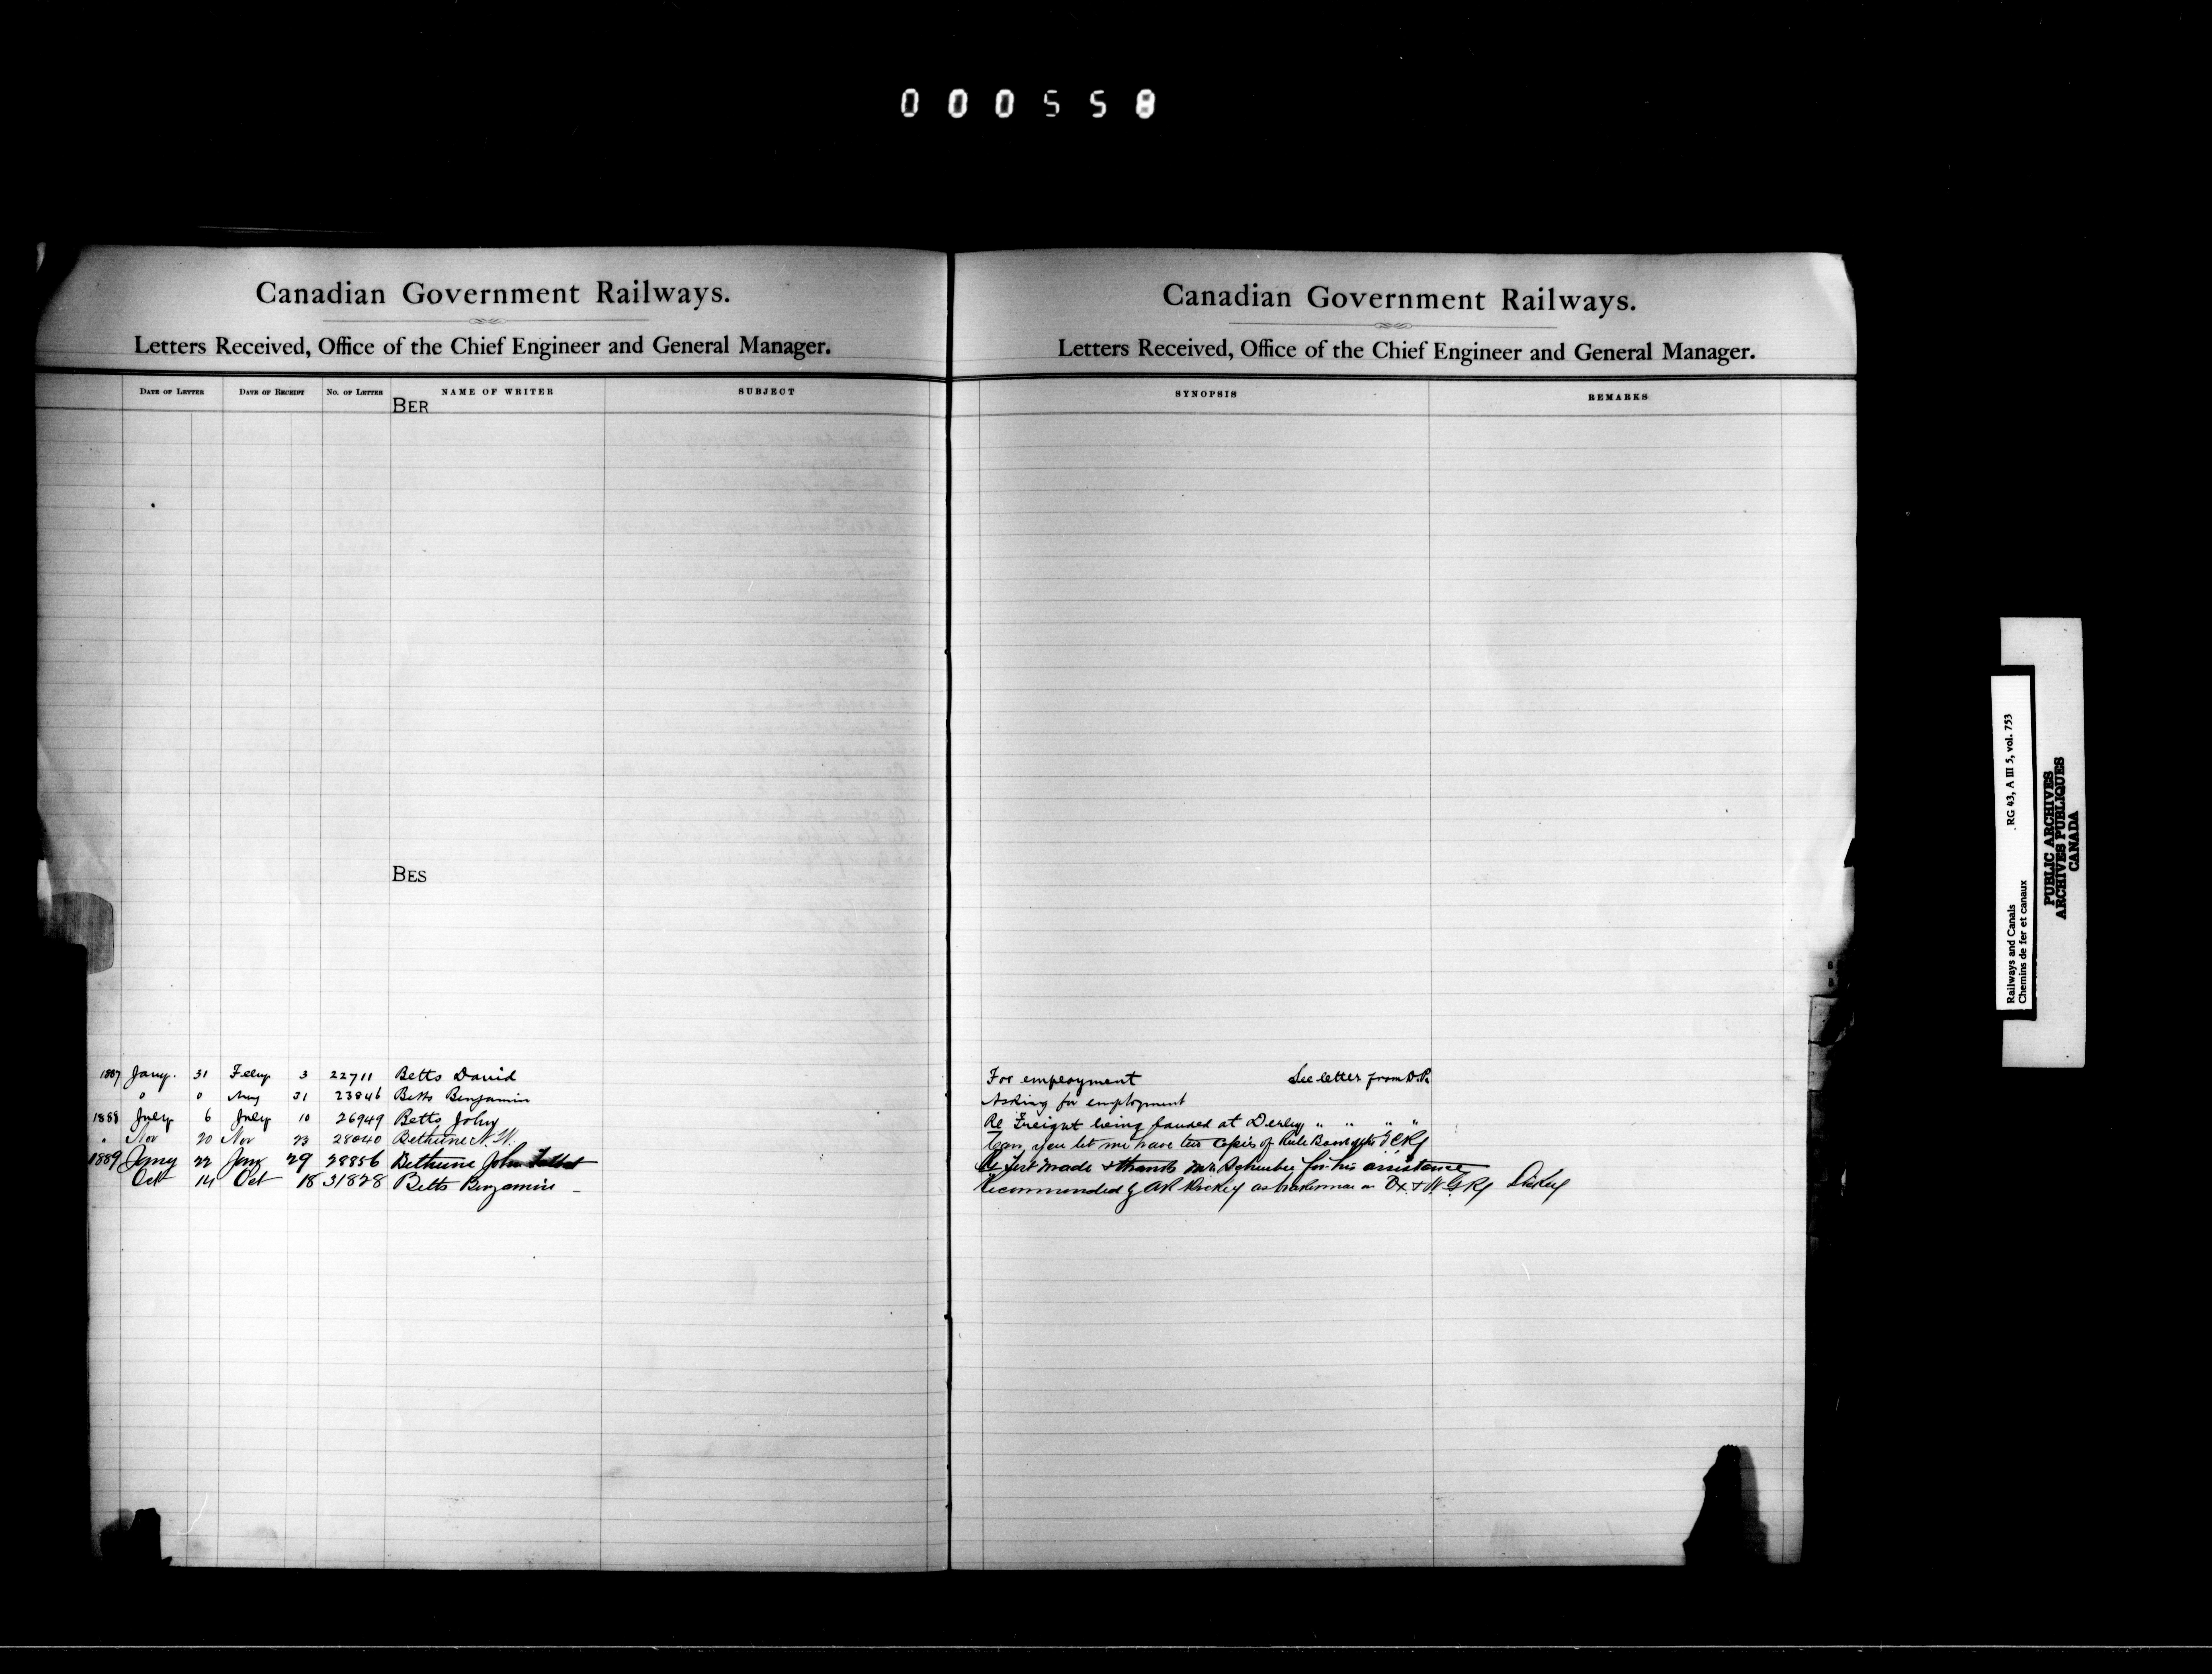 000558
Canadian Government Railways.
Letters Received, Office of the Chief Engineer and General Manager.
DATE OF LETTER DATE OF RECEIPT No. OF LETTER NAME OF WRITER SUBJECT
BER
BES
1887 Jany. 31 Feby 3 22711 Betts David
" " May 31 23846 Betts Benjamin
1888 July 6 July 10 26949 Betts John
" Nov 20 Nov 23 28040 Bethune N. W.
1889 Jany 22 Jany 29 28856 Bethune John
Oct 14 Oct 18 31828 Betts Benjamin
Canadian Government Railways.
Letters Received, Office of the Chief Engineer and General Manager.
SYNOPSIS REMARKS
For employment See letter from D.P.
Asking for employment
Re Freight being landed at Derby " " " "
Can you let me have two copies of Rule Book
Re Test made & thanks Mr. Schreiber for his assistance
Recommended by AR Dickey as brakeman on Ox. & N.G. Ry Dickey
Railways and Canals RG 43, A III 5, vol. 753
Chemins de fer et canaux
PUBLIC ARCHIVES
ARCHIVES PUBLIQUES
CANADA